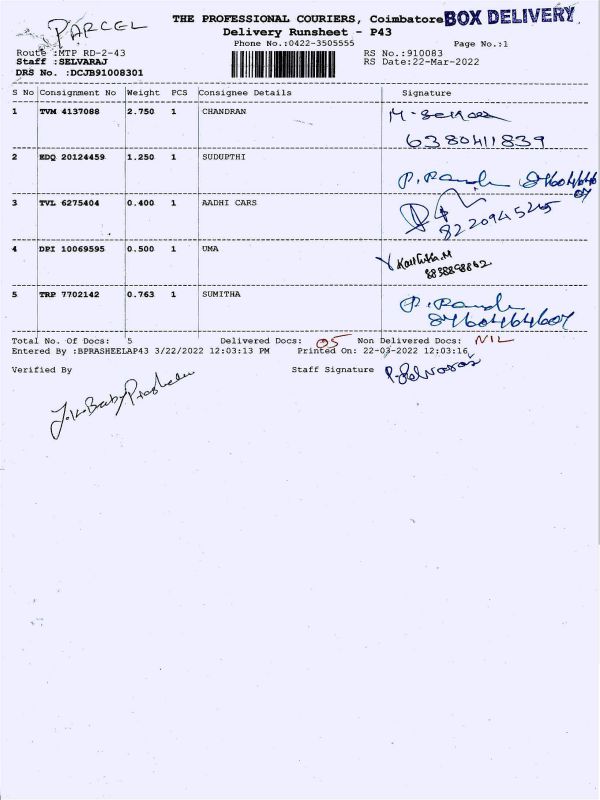 PARCEL
THE PROFESSIONAL COURIERS, Coimbatore BOX DELIVERY
Delivery Runsheet - P43
Phone No.:0422-3505555 Page No.:1
Route :MTP RD-2-43 RS No.:910083
Staff :SELVARAJ RS Date:22-Mar-2022
DRS No. :DCJB91008301
S No Consignment No Weight PCS Consignee Details Signature
1 TVM 4137088 2.750 1 CHANDRAN
6380411839
2 EDQ 20124459 1.250 1 SUDUPTHI
3 TVL 6275404 0.400 1 AADHI CARS
8220945265
4 DPI 10069595 0.500 1 UMA
5 TRP 7702142 0.763 1 SUMITHA
8760464607
Total No. Of Docs: 5 Delivered Docs: 05 Non Delivered Docs: NIL
Entered By :BPRASHEELAP43 3/22/2022 12:03:13 PM Printed On: 22-03-2022 12:03:16
Verified By Staff Signature P. Selvaraj